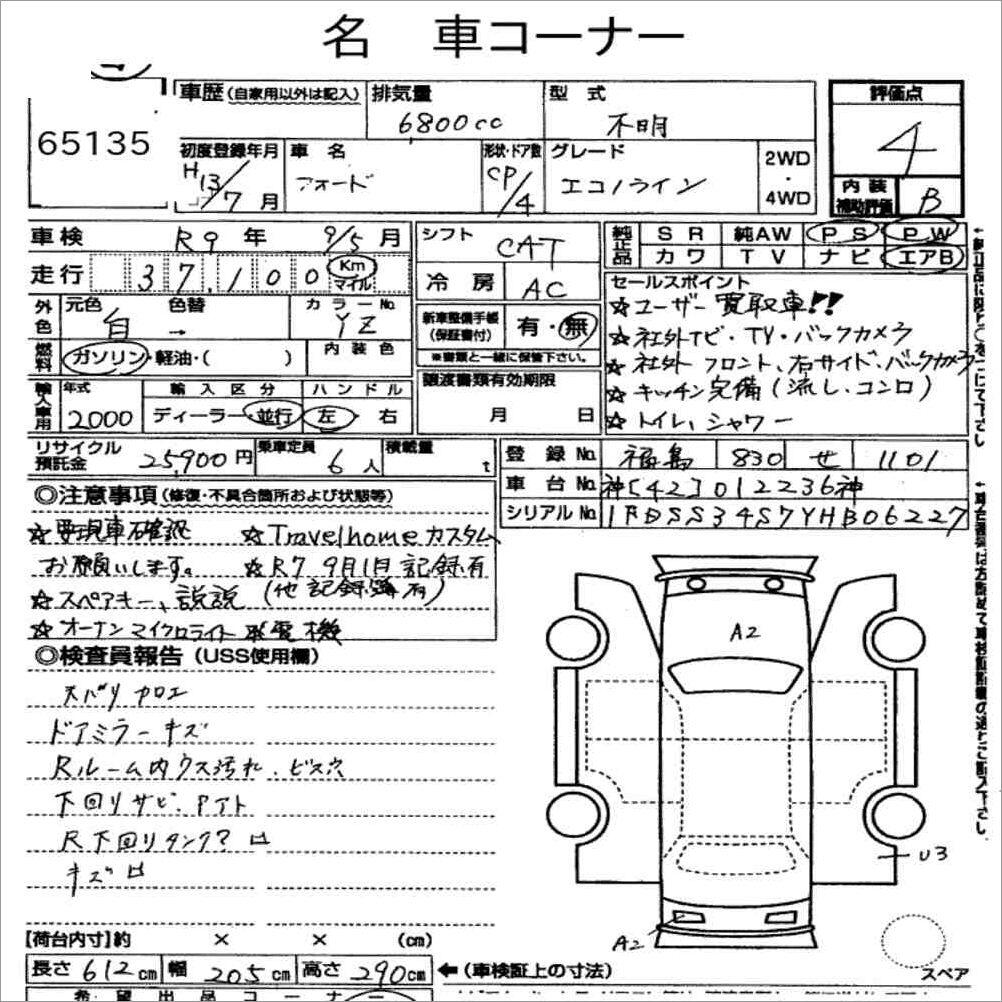 名 車コーナー
65135
車歴 (自家用以外は記入)
排気量
6800cc
型式
不明
評価点
4
内装
補助評価
B
初度登録年月
H13/7月
車名
フォード
形状・ドア数
CP/4
グレード
エコノライン
2WD
・
4WD
車検 R9年 9/5月
走行 37,100 Km マイル
シフト CAT
冷房 AC
純正品
SR 純AW PS PW
カワ TV ナビ エアB
セールスポイント
☆ユーザー買取車!!
☆社外ナビ・TV・バックカメラ
☆社外フロント、右サイド、バックカメラ
☆キッチン完備(流し、コンロ)
☆トイレ、シャワー
外色
元色 白
色替 →
カラーNo YZ
燃料
ガソリン・軽油・( )
内装色
新車整備手帳
(保証書付)
有・無
※書類と一緒に保管下さい。
輸入車用
年式 2000
輸入区分
ディーラー・並行
ハンドル
左・右
譲渡書類有効期限
月 日
リサイクル
預託金
25,900円
乗車定員 6人
積載量 t
登録No. 福島 830 せ 1101
車台No. 神[42]012236神
シリアルNo. 1FDSS34S7YHB06227
◎注意事項 (修復・不具合箇所および状態等)
☆要現車確認
お願いします。
☆スペアキー、説説
☆Travelhomeカスタム
☆R7 9月1月記録有
(他記録簿有)
☆オーナンマイクロライト発電機
◎検査員報告 (USS使用欄)
ドアミラーキズ
Rルーム内ウス汚れ、ビス穴
下回りサビ、Pアト
R下回りタンク?凹
キズ凹
A2
U3
A2
スペア
【荷台内寸】約 × × (cm)
長さ 612cm 幅 205cm 高さ 290cm
←(車検証上の寸法)
希望出品コーナー